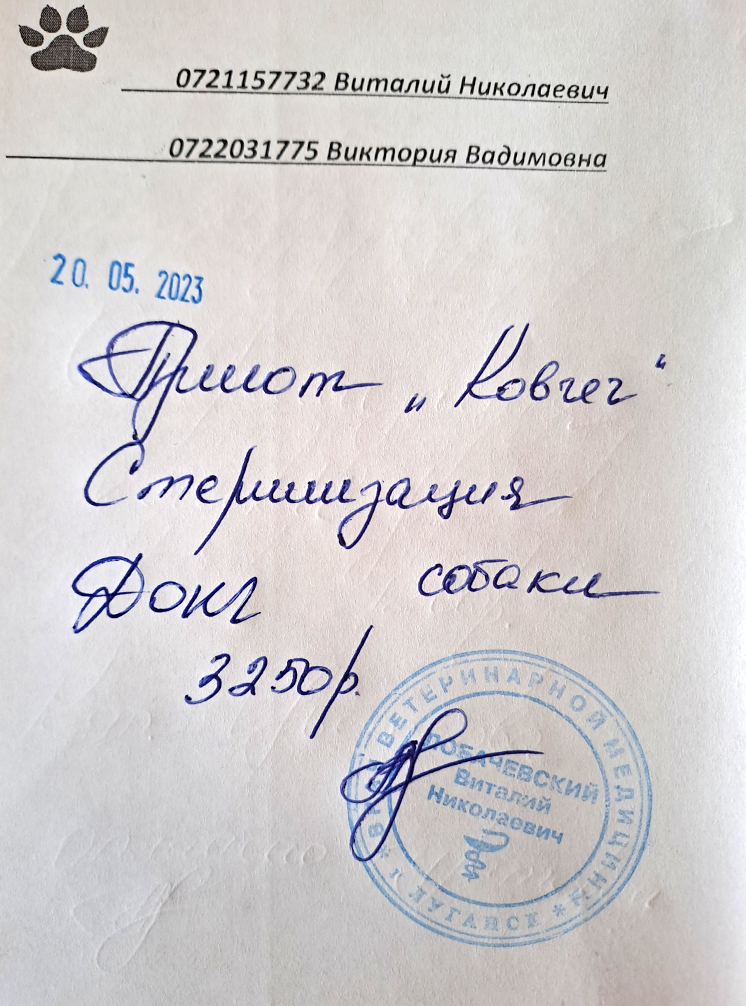 0721157732 Виталий Николаевич
0722031775 Виктория Вадимовна
20. 05. 2023
Приют „Ковчег“
Стерилизация
собаки
3250р.
ВРАЧ ВЕТЕРИНАРНОЙ МЕДИЦИНЫ
ЛОБАЧЕВСКИЙ
Виталий
Николаевич
* г. ЛУГАНСК *